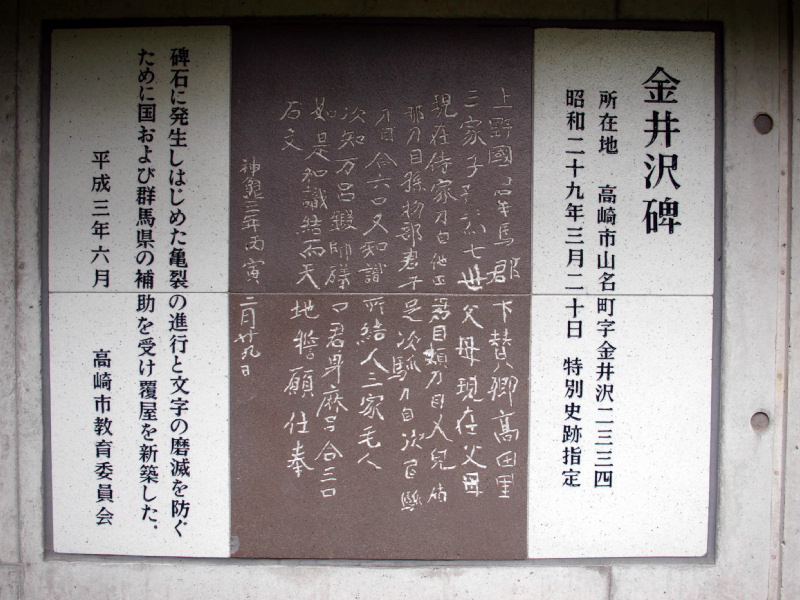 金井沢碑
所在地 高崎市山名町字金井沢二三三四
昭和二十九年三月二十日 特別史跡指定
上野國羣馬郡下賛郷高田里
三家子 為七世父母現在父母
現在侍家刀自他田君目頬刀自又兒加
那刀自孫物部君午足次馴刀自次乙馴
刀自合六口又知識所結人三家毛人
次知万呂鍛師礒マ君身麻呂合三口
如是知識結而天地誓願仕奉
石文
神亀三年丙寅二月廿九日
碑石に発生しはじめた亀裂の進行と文字の磨滅を防ぐ
ために国および群馬県の補助を受け覆屋を新築した。
平成三年六月 高崎市教育委員会